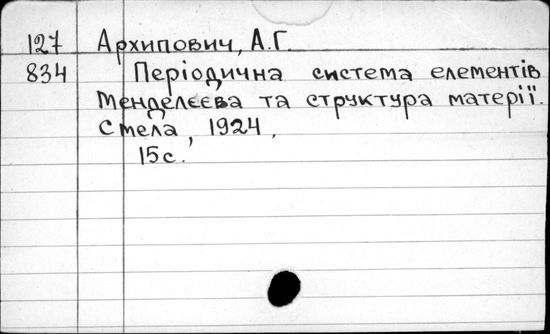 127 Архипович, А.Г.
834 Періодична система елементів
Менделєєва та структура матерії.
Смела, 1924,
15с.